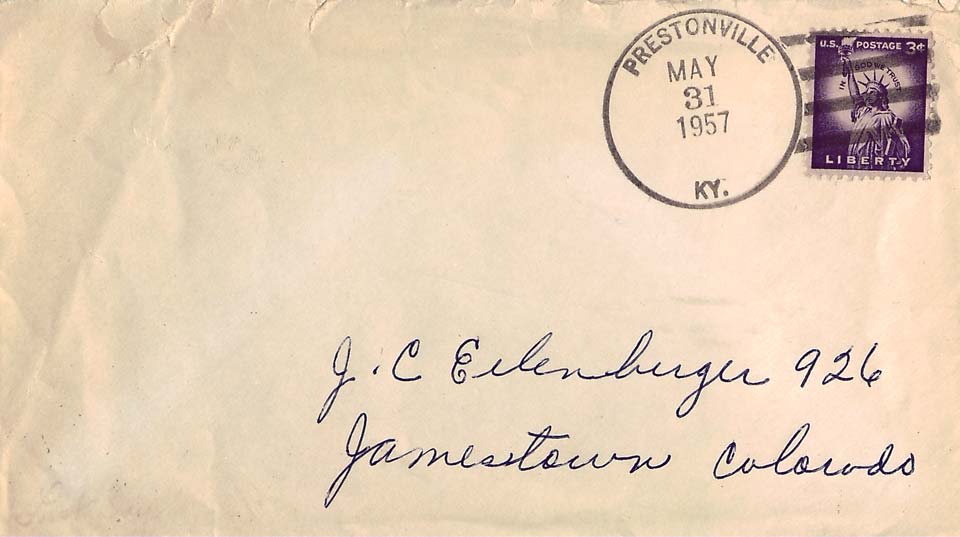 PRESTONVILLE
MAY
31
1957
KY.
U.S. POSTAGE 3¢
IN GOD WE TRUST
LIBERTY
J. C Eilenburger 926
Jamestown Colorado